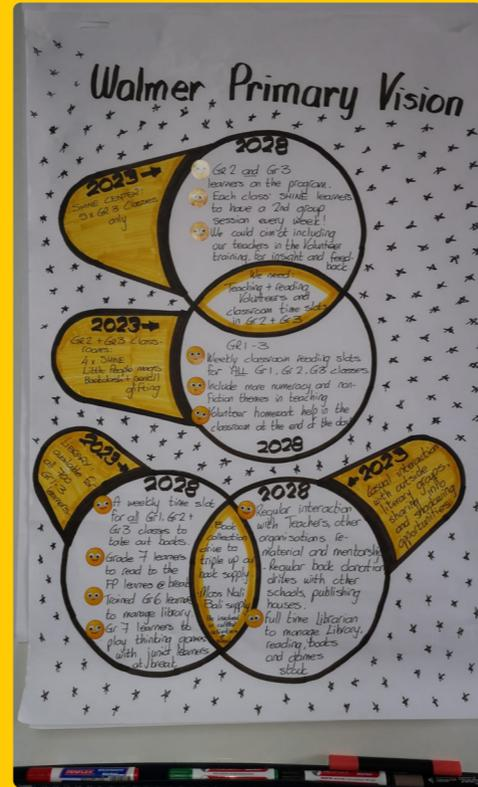 Walmer Primary Vision
2028
2023
SHINE CENTER:
5 x GR 3 Classes
only
GR 2 and Gr 3
learners on the program.
Each class' SHINE learners
to have a 2nd group
session every week!
We could aim at including
our teachers in the Volunteer
training, for insight and feed-
back
We need:
Teaching + reading
Volunteers and
classroom time slots
in Gr 2 + Gr 3
2023
Gr 2 + GR 3 Class-
rooms:
4 x SHINE
Little People mags
Bookdash + pencil
gifting
GR 1 - 3
Weekly classroom reading slots
for ALL Gr 1, Gr 2, G3 classes.
Include more numeracy and non-
fiction themes in teaching
Volunteer homework help in the
classroom at the end of the day
2028
2023
Library
available to
all
Gr 1-3
learners
2028
A weekly time slot
for all Gr 1, Gr 2 +
Gr 3 classes to
take out books.
Grade 7 learners
to read to the
FP learners @ break
Trained Gr 6 learners
to manage library.
Gr 7 learners to
play thinking games
with junior learners
at break
Book
collection
drive to
triple up our
book supply
Mass Nali
Bali supply
2028
Regular interaction
with Teachers, other
organisations re-
material and mentorship
Regular book donation
drives with other
schools, publishing
houses.
Full time Librarian
to manage Library,
reading, books
and games
stock
2023
Casual interaction
with outside
literacy groups,
sharing info
and
opportunities